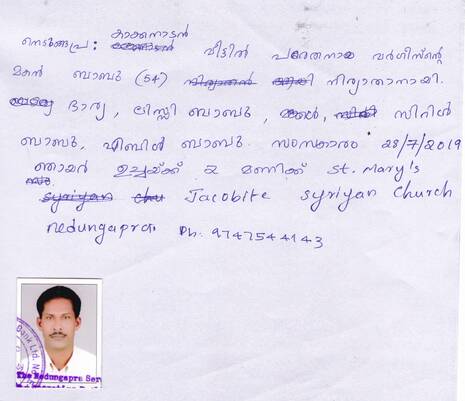 നെടുങ്ങപ്ര: കാക്കനാടൻ വീട്ടിൽ പരേതനായ വർഗീസിന്റെ
മകൻ ബാബു (54) നിര്യാതനായി.
ഭാര്യ, ലിസ്സി ബാബു, മക്കൾ, സിറിൾ
ബാബു, എബിൻ ബാബു. സംസ്കാരം 28/7/2019
ഞായർ ഉച്ചയ്ക്ക് 2 മണിക്ക് St. Mary's
Jacobite Syriyan Church
Nedungapra. Ph: 9747544143
Bank Ltd. No
The Nedungapra Ser